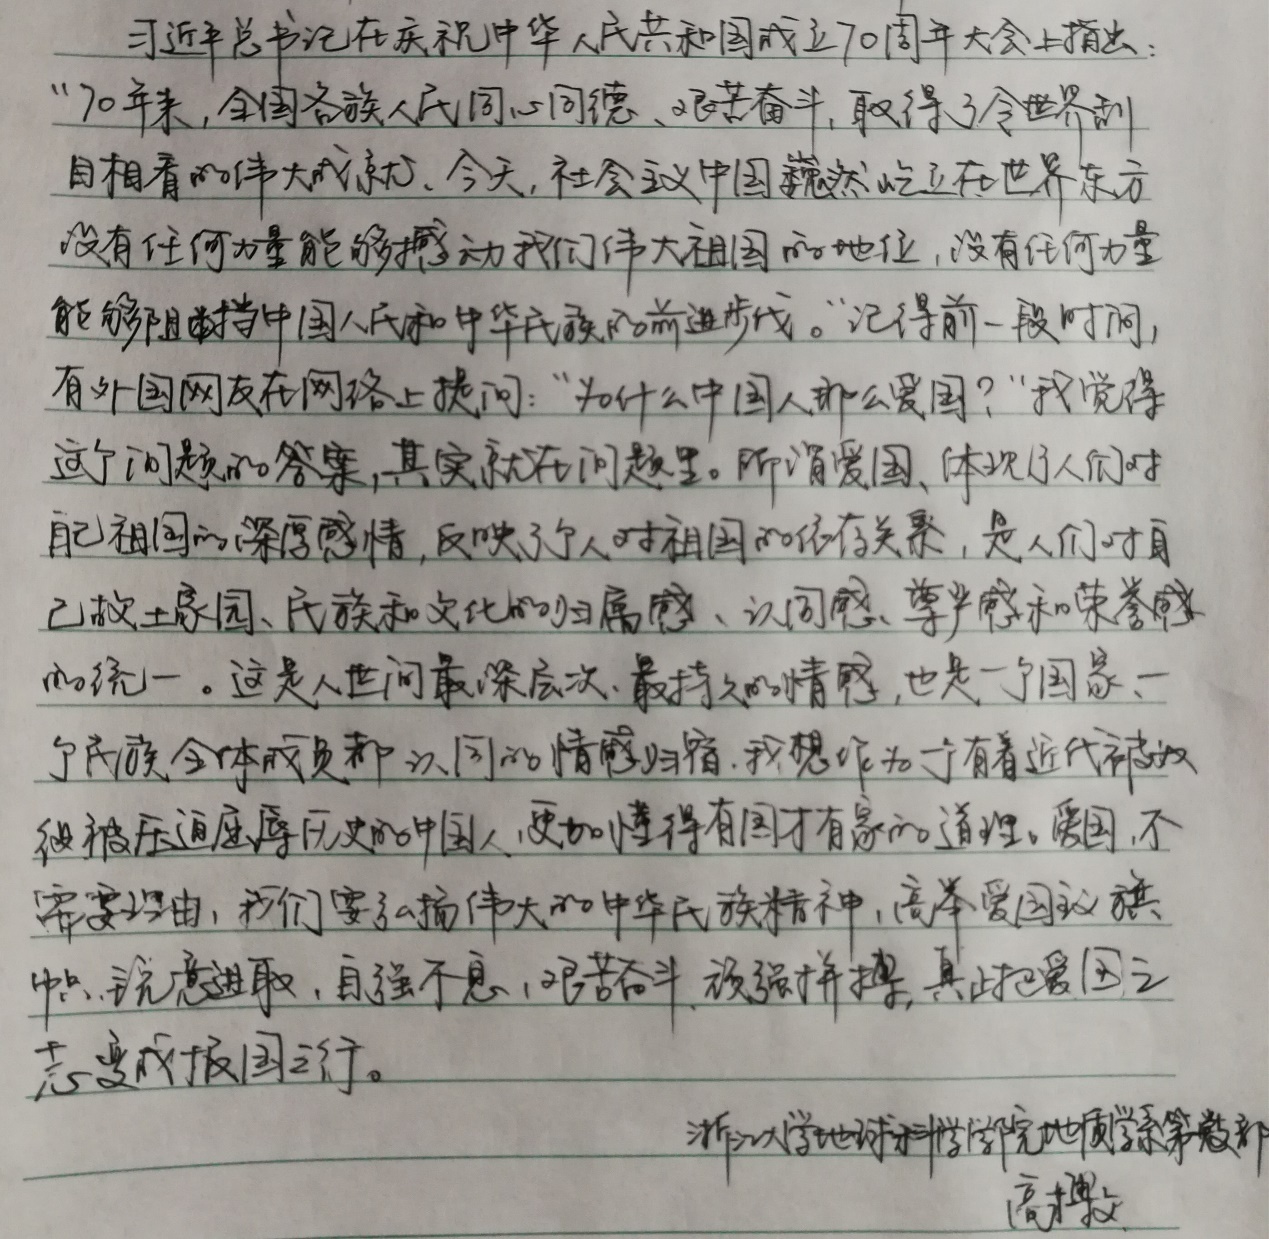 习近平总书记在庆祝中华人民共和国成立70周年大会上指出：
“70年来，全国各族人民同心同德、艰苦奋斗，取得了令世界刮
目相看的伟大成就、今天，社会主义中国巍然屹立在世界东方
没有任何力量能够撼动我们伟大祖国的地位，没有任何力量
能够阻挡中国人民和中华民族的前进步伐。”记得前一段时间，
有外国网友在网络上提问：“为什么中国人那么爱国？”我觉得
这个问题的答案，其实就在问题里。所谓爱国、体现了人们对
自己祖国的深厚感情，反映了个人对祖国的依存关系，是人们对自
己故土家园、民族和文化的归属感、认同感、尊严感和荣誉感
的统一。这是人世间最深层次、最持久的情感，也是一个国家、一
个民族全体成员都认同的情感归宿.我想作为一个有着近代被奴
役被压迫屈辱历史的中国人，更加懂得有国才有家的道理。爱国，不
需要理由，我们要弘扬伟大的中华民族精神，高举爱国主义旗
帜、锐意进取，自强不息，艰苦奋斗、顽强拼搏，真正把爱国之
志变成报国之行。
浙江大学地球科学学院地质学系
高